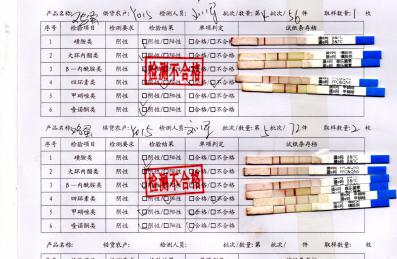 产品名称: 鸡蛋 供货农户: Y015 检测人员: 批次/数量: 第 4 批/ 56 件 取样数量: 1 枚
序号 检验项目 检验要求 检验结果 单项判定 试纸条存档
1 磺胺类 阴性 □阴性/□阳性 □合格/□不合格
2 大环内酯类 阴性 □阴性/□阳性 □合格/□不合格
3 β-内酰胺类 阴性 □阴性/□阳性 □合格/□不合格
4 四环素类 阴性 □阴性/□阳性 □合格/□不合格
5 甲硝唑类 阴性 □阴性/□阳性 □合格/□不合格
6 喹诺酮类 阴性 □阴性/□阳性 □合格/□不合格
检测不合格
产品名称: 鸡蛋 供货农户: Y015 检测人员: 批次/数量: 第 5 批/ 72 件 取样数量: 2 枚
序号 检验项目 检验要求 检验结果 单项判定 试纸条存档
1 磺胺类 阴性 □阴性/□阳性 □合格/□不合格
2 大环内酯类 阴性 □阴性/□阳性 □合格/□不合格
3 β-内酰胺类 阴性 □阴性/□阳性 □合格/□不合格
4 四环素类 阴性 □阴性/□阳性 □合格/□不合格
5 甲硝唑类 阴性 □阴性/□阳性 □合格/□不合格
6 喹诺酮类 阴性 □阴性/□阳性 □合格/□不合格
检测不合格
产品名称: 供货农户: 检测人员: 批次/数量: 第 批/ 件 取样数量: 枚
序号 检验项目 检验要求 检验结果 单项判定 试纸条存档